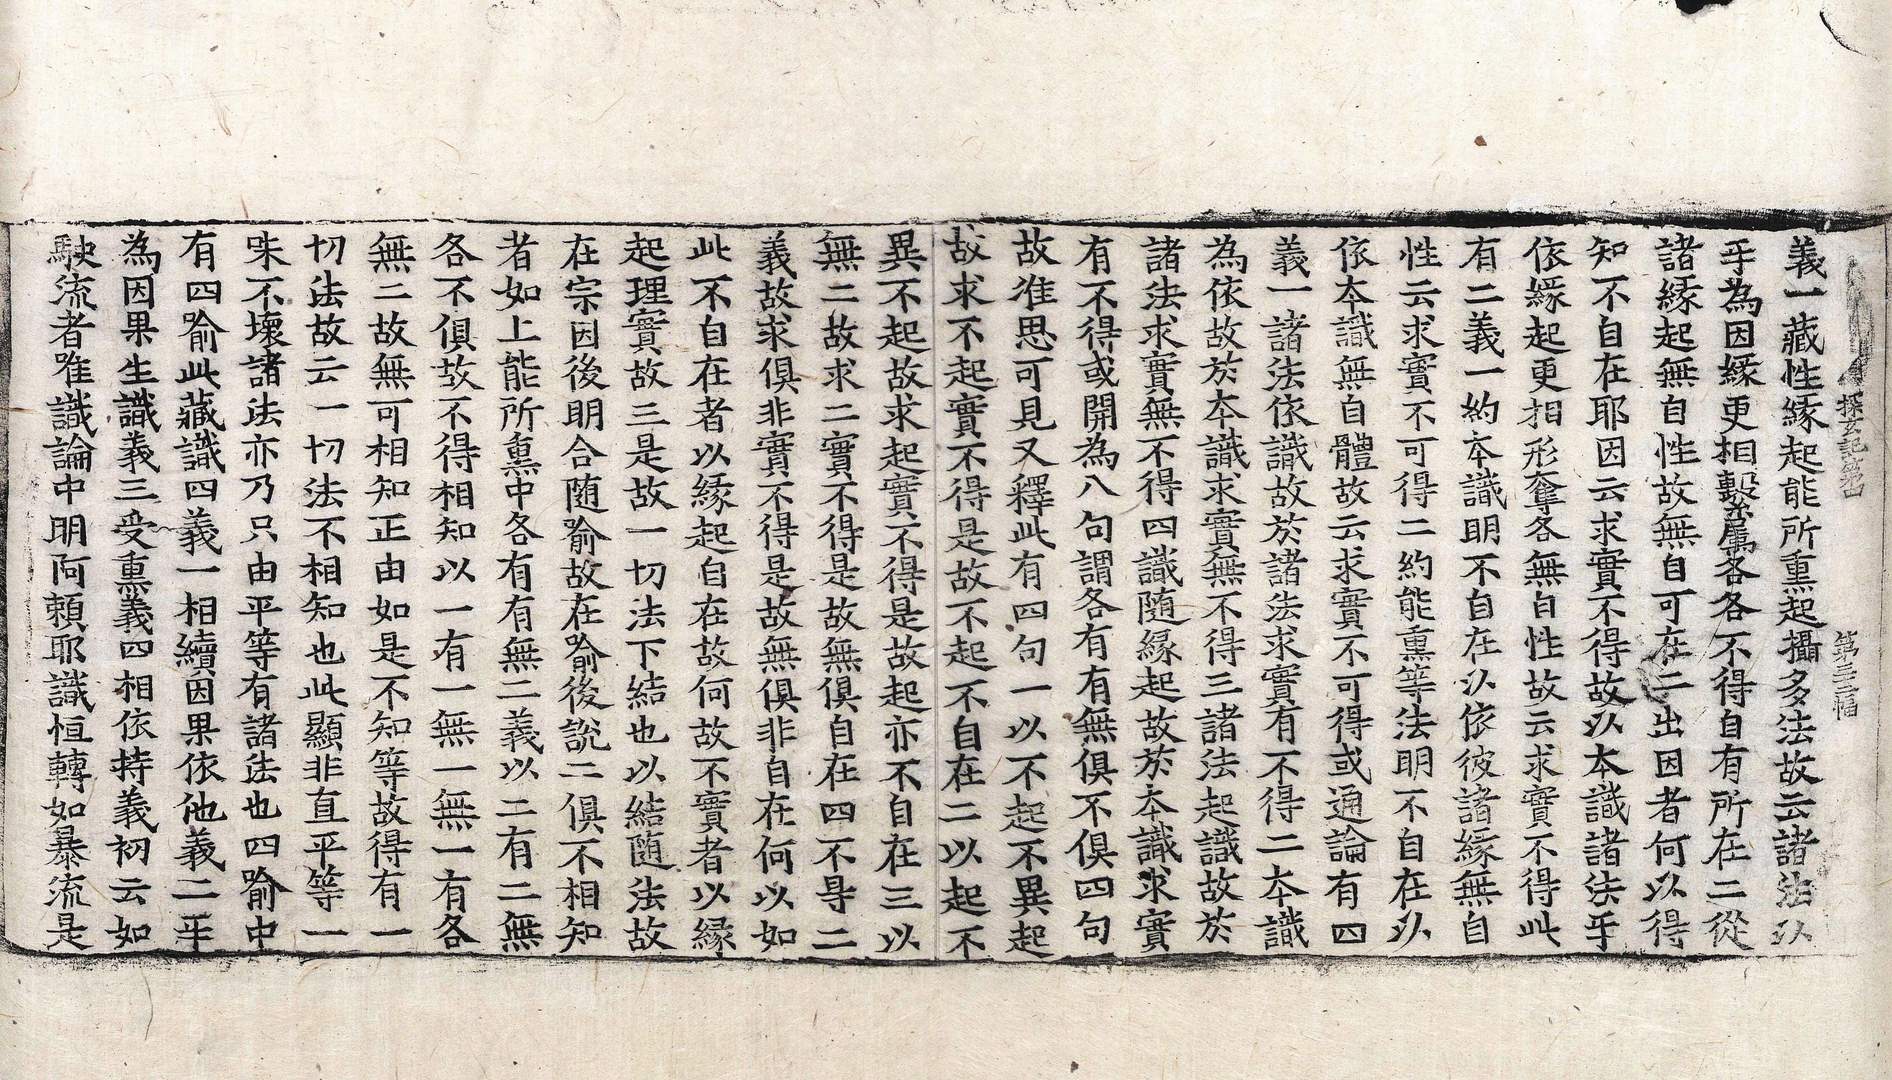 探玄記第四　第三三幅
義一藏性緣起能所熏起攝多法故云諸法以
乎為因緣更相繫屬各各不得自有所在二從
諸緣起無自性故無自可在二出因者何以得
知不自在耶因云求實不得故以本識諸法乎
依緣起更相形奪各無自性故云求實不得此
有二義一約本識明不自在以依彼諸緣無自
性云求實不可得二約能熏等法明不自在以
依本識無自體故云求實不可得或通論有四
義一諸法依識故於諸法求實有不得二本識
為依故於本識求實無不得三諸法起識故於
諸法求實無不得四識隨緣起故於本識求實
有不得或開為八句謂各有有無俱不俱四句
故准思可見又釋此有四句一以不起不異起
故求不起實不得是故不起不自在二以起不
異不起故求起實不得是故起亦不自在三以
無二故求二實不得是故無俱自在四不㝵二
義故求俱非實不得是故無俱非自在何以如
此不自在者以緣起自在故何故不實者以緣
起理實故三是故一切法下結也以結隨法故
在宗因後明合隨喻故在喻後說二俱不相知
者如上能所熏中各有有無二義以二有二無
各不俱故不得相知以一有一無一無一有各
無二故無可相知正由如是不知等故得有一
切法故云一切法不相知也此顯非直平等一
味不壞諸法亦乃只由平等有諸法也四喻中
有四喻此藏識四義一相續因果依他義二乎
為因果生識義三受熏義四相依持義初云如
駛流者唯識論中明阿賴耶識恒轉如暴流是